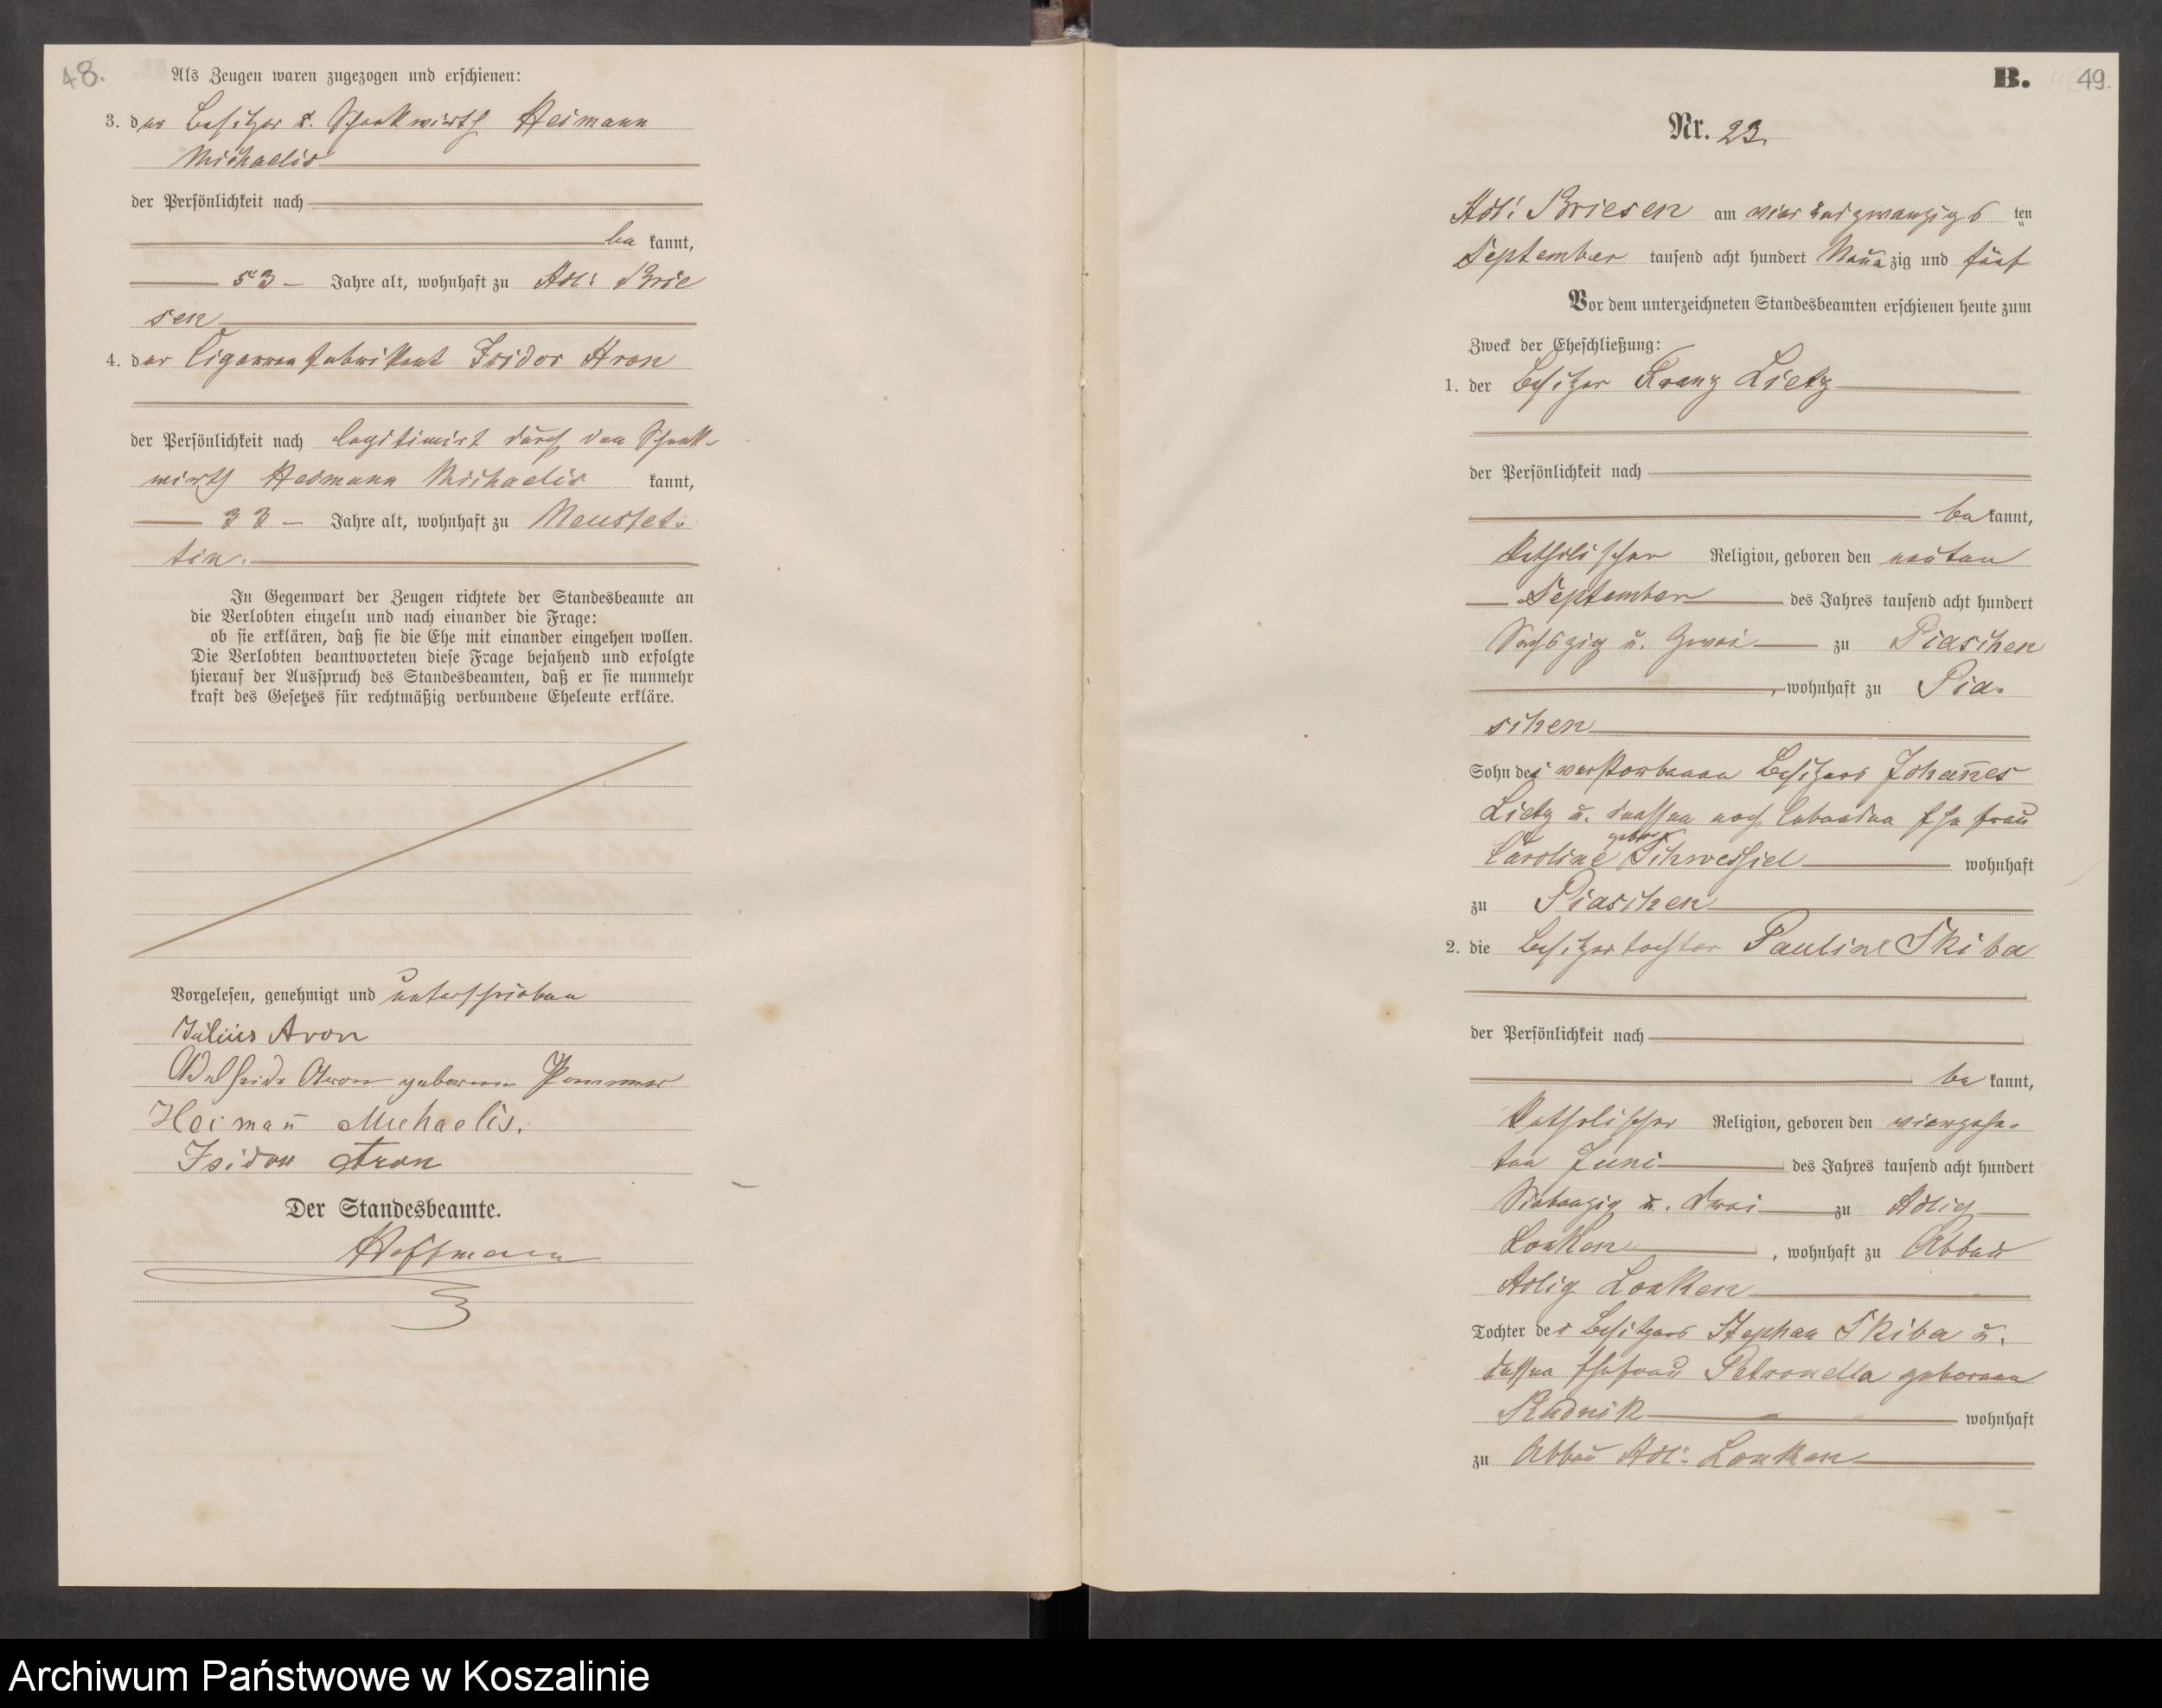 48.
Als Zeugen waren zugezogen und erschienen:
3. der Besitzer u. Schankwirth Heimann
Michaelis
der Persönlichkeit nach
be kannt,
53 Jahre alt, wohnhaft zu Adl: Brie
sen
4. der Cigarrenfabrikant Isidor Aron
der Persönlichkeit nach legitimirt durch den Schank-
wirth Heimann Michaelis kannt,
33 Jahre alt, wohnhaft zu Neustet-
tin.
In Gegenwart der Zeugen richtete der Standesbeamte an
die Verlobten einzeln und nach einander die Frage:
ob sie erklären, daß sie die Ehe mit einander eingehen wollen.
Die Verlobten beantworteten diese Frage bejahend und erfolgte
hierauf der Ausspruch des Standesbeamten, daß er sie nunmehr
kraft des Gesetzes für rechtmäßig verbundene Eheleute erkläre.
Vorgelesen, genehmigt und unterschrieben
Julius Aron
Adelheide Aron geborene Pommer
Heimañ Michaelis.
Isidor Aron
Der Standesbeamte.
Hoffmann
B. 49.
Nr. 23.
Adl: Briesen am vier und zwanzigs ten
September tausend acht hundert Neun zig und fünf
Vor dem unterzeichneten Standesbeamten erschienen heute zum
Zweck der Eheschließung:
1. der Besitzer Franz Lietz
der Persönlichkeit nach
be kannt,
katholischer Religion, geboren den neuten
September des Jahres tausend acht hundert
Sechszig u. Zwei zu Piaschen
, wohnhaft zu Pia-
schen
Sohn des verstorbenen Besitzers Johañes
Lietz u. dessen noch lebenden Ehefrau
Caroline gebor. Schwessiel wohnhaft
zu Piaschen
2. die Besitzertochter Pauline Skiba
der Persönlichkeit nach
be kannt,
katholischer Religion, geboren den vierzehn-
ten Juni des Jahres tausend acht hundert
Siebenzig u. drei zu Adlig
Lonken, wohnhaft zu Abbau
Adlig Lonken
Tochter des Besitzers Stephan Skiba u.
dessen Ehefrau Petronella geborenen
Rudnik wohnhaft
zu Abbau Adl: Lonken
Archiwum Państwowe w Koszalinie